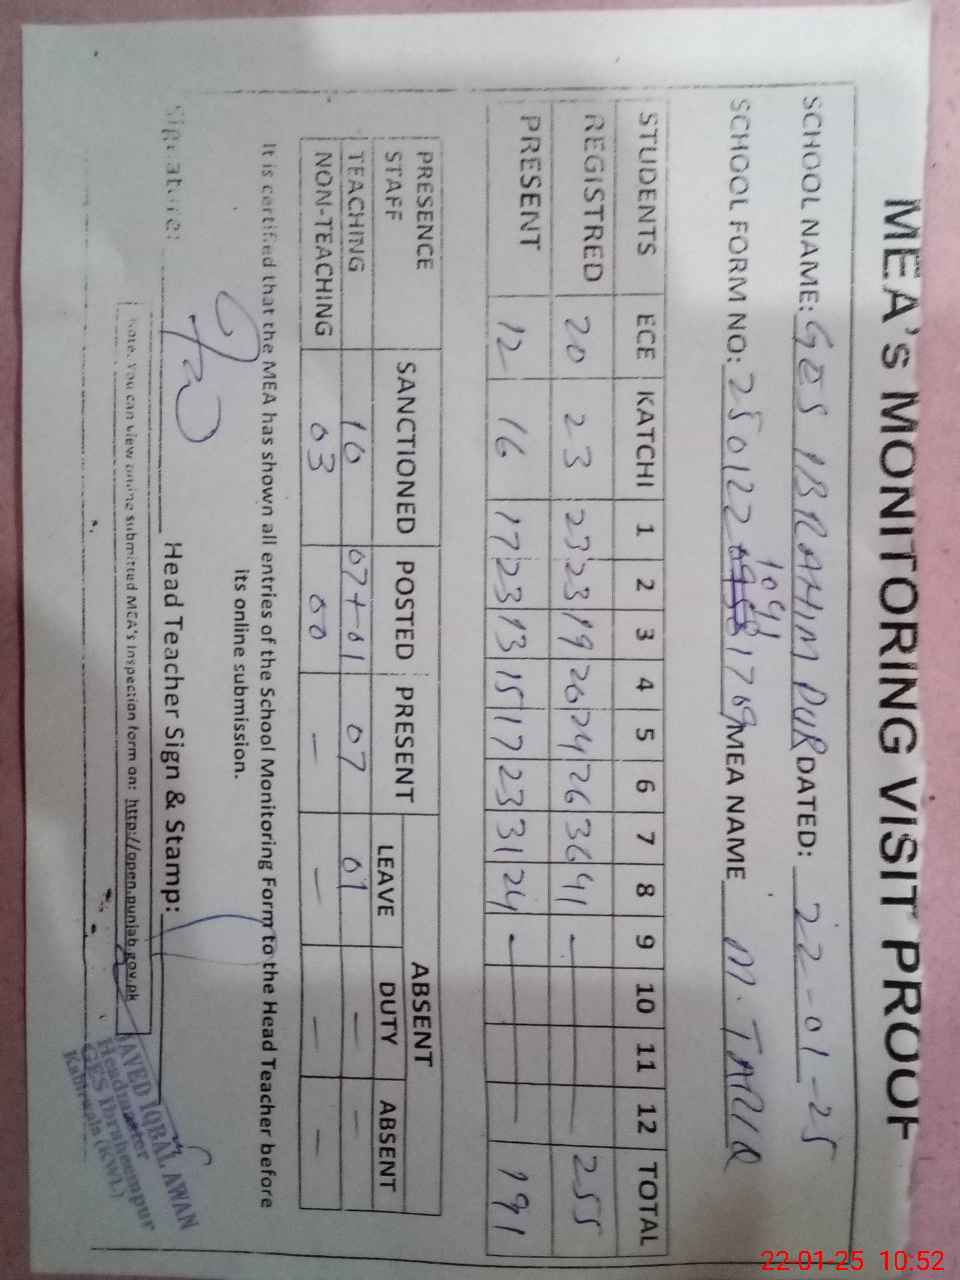 MEA's MONITORING VISIT PROOF
SCHOOL NAME: GES IBRAHIM PUR DATED: 22-01-25
SCHOOL FORM NO: 250122 1769 MEA NAME M. TARIQ
1091
STUDENTS ECE KATCHI 1 2 3 4 5 6 7 8 9 10 11 12 TOTAL
REGISTRED 20 23 23 23 19 20 24 26 36 41 — 255
PRESENT 12 16 17 23 13 15 17 23 31 24 — 191
PRESENCE STAFF SANCTIONED POSTED PRESENT ABSENT
LEAVE DUTY ABSENT
TEACHING 10 07+01 07 01 — —
NON-TEACHING 03 00 — — — —
It is certified that the MEA has shown all entries of the School Monitoring Form to the Head Teacher before
its online submission.
Signature: Head Teacher Sign & Stamp:
Note. You can view online submitted MEA's Inspection form on: http://open.punjab.gov.pk
JAVED IQBAL AWAN
Headmaster
GES Ibraheempur
Kabirwala (KWL)
22-01-25 10:52